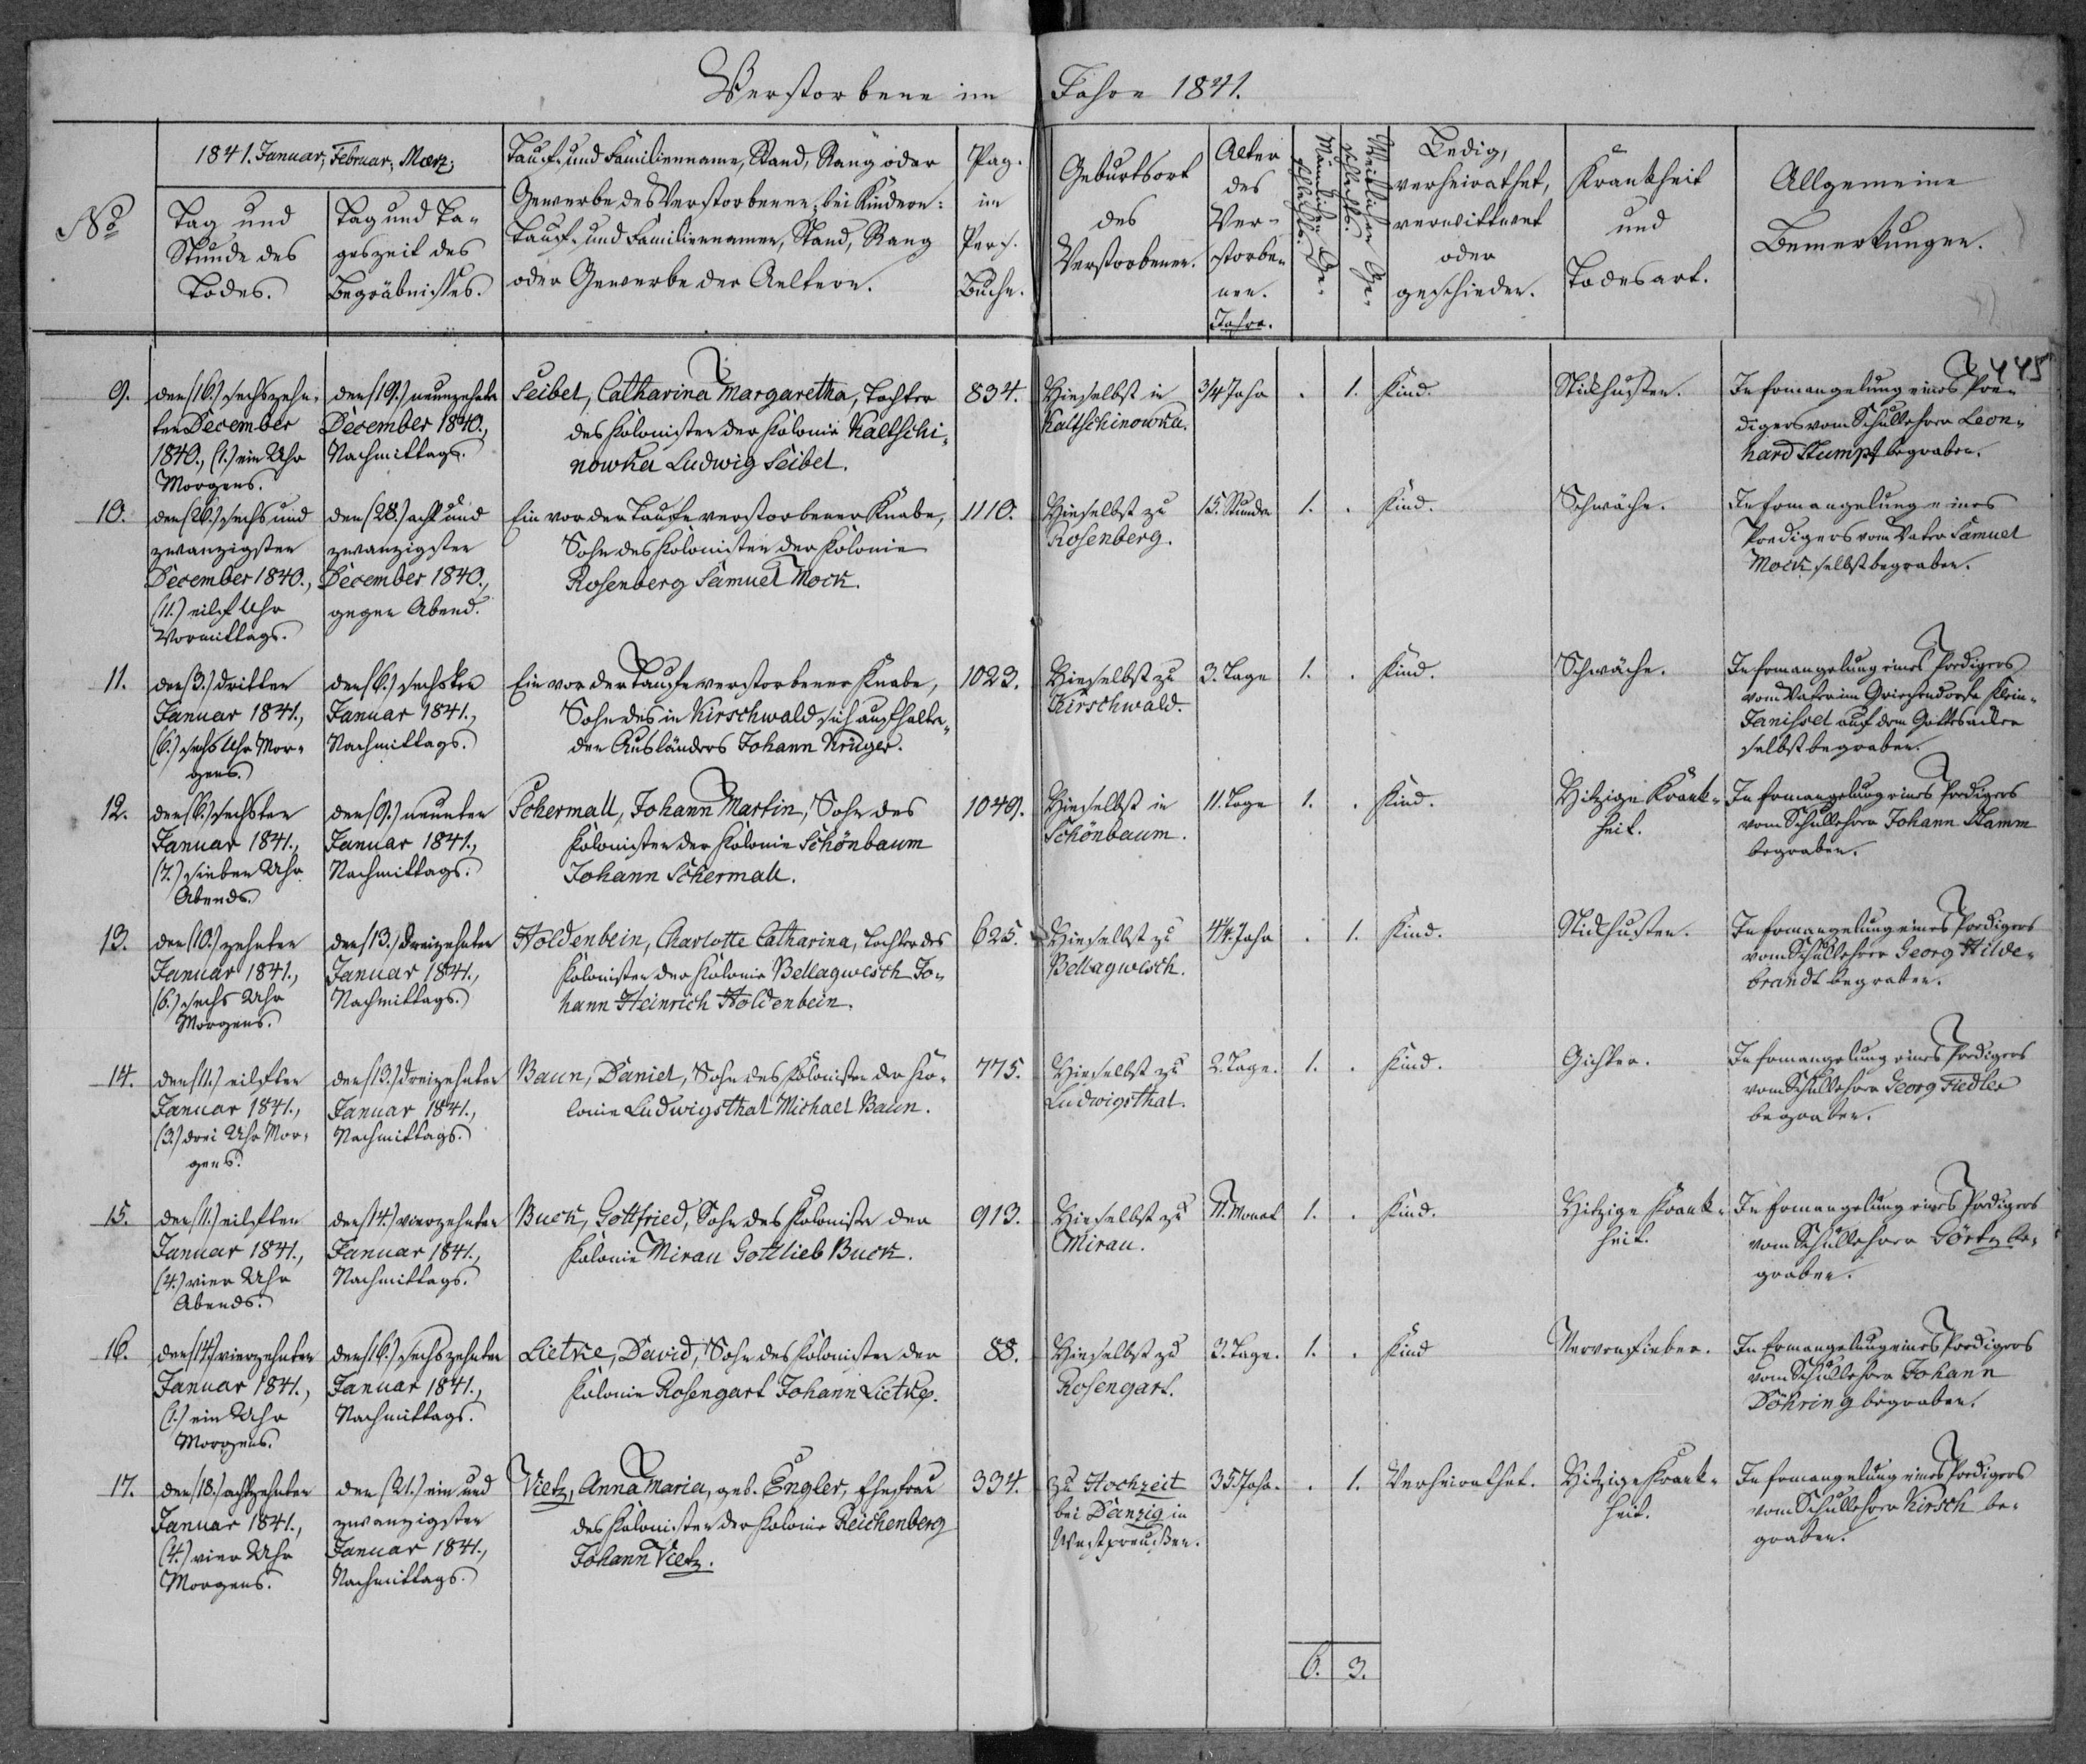 Verstorbene im Jahre 1841.
No
1841. Januar, Februar, Maerz,
Tag und
Stunde des
Todes.
Tag und Ta-
geszeit des
Begräbnisses.
Tauf- und Familienname, Stand, Rang oder
Gewerbe des Verstorbenen; bei Kindern:
Tauf- und Familiennamen, Stand, Rang
oder Gewerbe der Aeltern.
Pag.
im
Pers.
Buche.
Geburtsort
des
Verstorbenen.
Alter
des
Ver-
storbe-
nen.
Jahre.
Männlichen Ge-
schlechts.
Weiblichen Ge-
schlechts.
Ledig,
verheirathet,
verwittwet
oder
geschieden.
Krankheit
und
Todesart.
Allgemeine
Bemerkungen.
445
9.
den (16.) sechszehn-
ten December
1840., (1.) ein Uhr
Morgens.
den (19.) neunzehnten
December 1840.,
Nachmittags.
Seibel, Catharina Margaretha, Tochter
des Kolonisten der Kolonie Kaltschi-
nowka Ludwig Seibel.
834.
Hieselbst in
Kaltschinowka.
3/4 Jahr
.
1.
Kind.
Stickhusten.
In Ermangelung eines Pre-
digers vom Schullehrer Leon-
hard Stumpf begraben.
10.
den (26.) sechs und
zwanzigsten
December 1840.,
(11.) eilf Uhr
Vormittags.
den (28.) acht und
zwanzigsten
December 1840.,
gegen Abend.
Ein vor der Taufe verstorbener Knabe,
Sohn des Kolonisten der Kolonie
Rosenberg Samuel Mock.
1110.
Hieselbst zu
Rosenberg.
15. Stunden
1.
.
Kind.
Schwäche.
In Ermangelung eines
Predigers vom Vater Samuel
Mock selbst begraben.
11.
den (3.) dritten
Januar 1841.,
(6.) sechs Uhr Mor-
gens.
den (6.) sechsten
Januar 1841.,
Nachmittags.
Ein vor der Taufe verstorbener Knabe,
Sohn des in Kirschwald sich aufhalten-
den Ausländers Johann Krüger.
1023.
Hieselbst zu
Kirschwald.
3. Tage
1.
.
Kind.
Schwäche.
In Ermangelung eines Predigers
vom Vater im Griechendorfe Klein-
Janisol auf dem Gottesacker
selbst begraben.
12.
den (6.) sechsten
Januar 1841.,
(7.) sieben Uhr
Abends.
den (9.) neunten
Januar 1841.,
Nachmittags.
Schermall, Johann Martin, Sohn des
Kolonisten der Kolonie Schönbaum
Johann Schermall.
1049.
Hieselbst in
Schönbaum.
11. Tage
1.
.
Kind.
Hitzige Krank-
heit.
In Ermangelung eines Predigers
vom Schullehrer Johann Stamm
begraben.
13.
den (10.) zehnten
Januar 1841.,
(6.) sechs Uhr
Morgens.
den (13.) dreizehnten
Januar 1841.,
Nachmittags.
Holdenbein, Charlotte Catharina, Tochter des
Kolonisten der Kolonie Bellagwesch Jo-
hann Heinrich Holdenbein.
625.
Hieselbst zu
Bellagwesch.
Jahr
.
1.
Kind.
Stickhusten.
In Ermangelung eines Predigers
vom Schullehrer Georg Hilde-
brandt begraben.
14.
den (11.) eilften
Januar 1841.,
(3.) drei Uhr Mor-
gens.
den (13.) dreizehnten
Januar 1841.,
Nachmittags.
Baun, Daniel, Sohn des Kolonisten der Ko-
lonie Ludwigsthal Michael Baun.
775.
Hieselbst zu
Ludwigsthal.
2. Tage.
1.
.
Kind.
Gichter.
In Ermangelung eines Predigers
vom Schullehrer Georg Fiedler
begraben.
15.
den (11.) eilften
Januar 1841.,
(4.) vier Uhr
Abends.
den (14.) vierzehnten
Januar 1841.,
Nachmittags.
Buck, Gottfried, Sohn des Kolonisten der
Kolonie Mirau Gottlieb Buck.
913.
Hieselbst zu
Mirau.
11. Monat
1.
.
Kind.
Hitzige Krank-
heit.
In Ermangelung eines Predigers
vom Schullehrer Görtz be-
graben.
16.
den (14.) vierzehnten
Januar 1841.,
(1.) ein Uhr
Morgens.
den (16.) sechszehnten
Januar 1841.,
Nachmittags.
Lietke, David, Sohn des Kolonisten der
Kolonie Rosengart Johann Lietke.
88.
Hieselbst zu
Rosengart.
3. Tage.
1.
.
Kind
Nervenfieber.
In Ermangelung eines Predigers
vom Schullehrer Johann
Döhring begraben.
17.
den (18.) achtzehnten
Januar 1841.,
(4.) vier Uhr
Morgens.
den (21.) ein und
zwanzigsten
Januar 1841.,
Nachmittags.
Vietz, Anna Maria, geb. Engler, Ehefrau
des Kolonisten der Kolonie Reichenberg
Johann Vietz.
334.
zu Hochzeit
bei Danzig in
Westpreußen.
35 Jahr.
.
1.
Verheirathet.
Hitzige Krank-
heit.
In Ermangelung eines Predigers
vom Schullehrer Kirsch be-
graben.
6.
3.